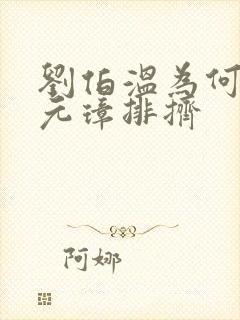 劉伯溫為何
元璋排擠
阿娜